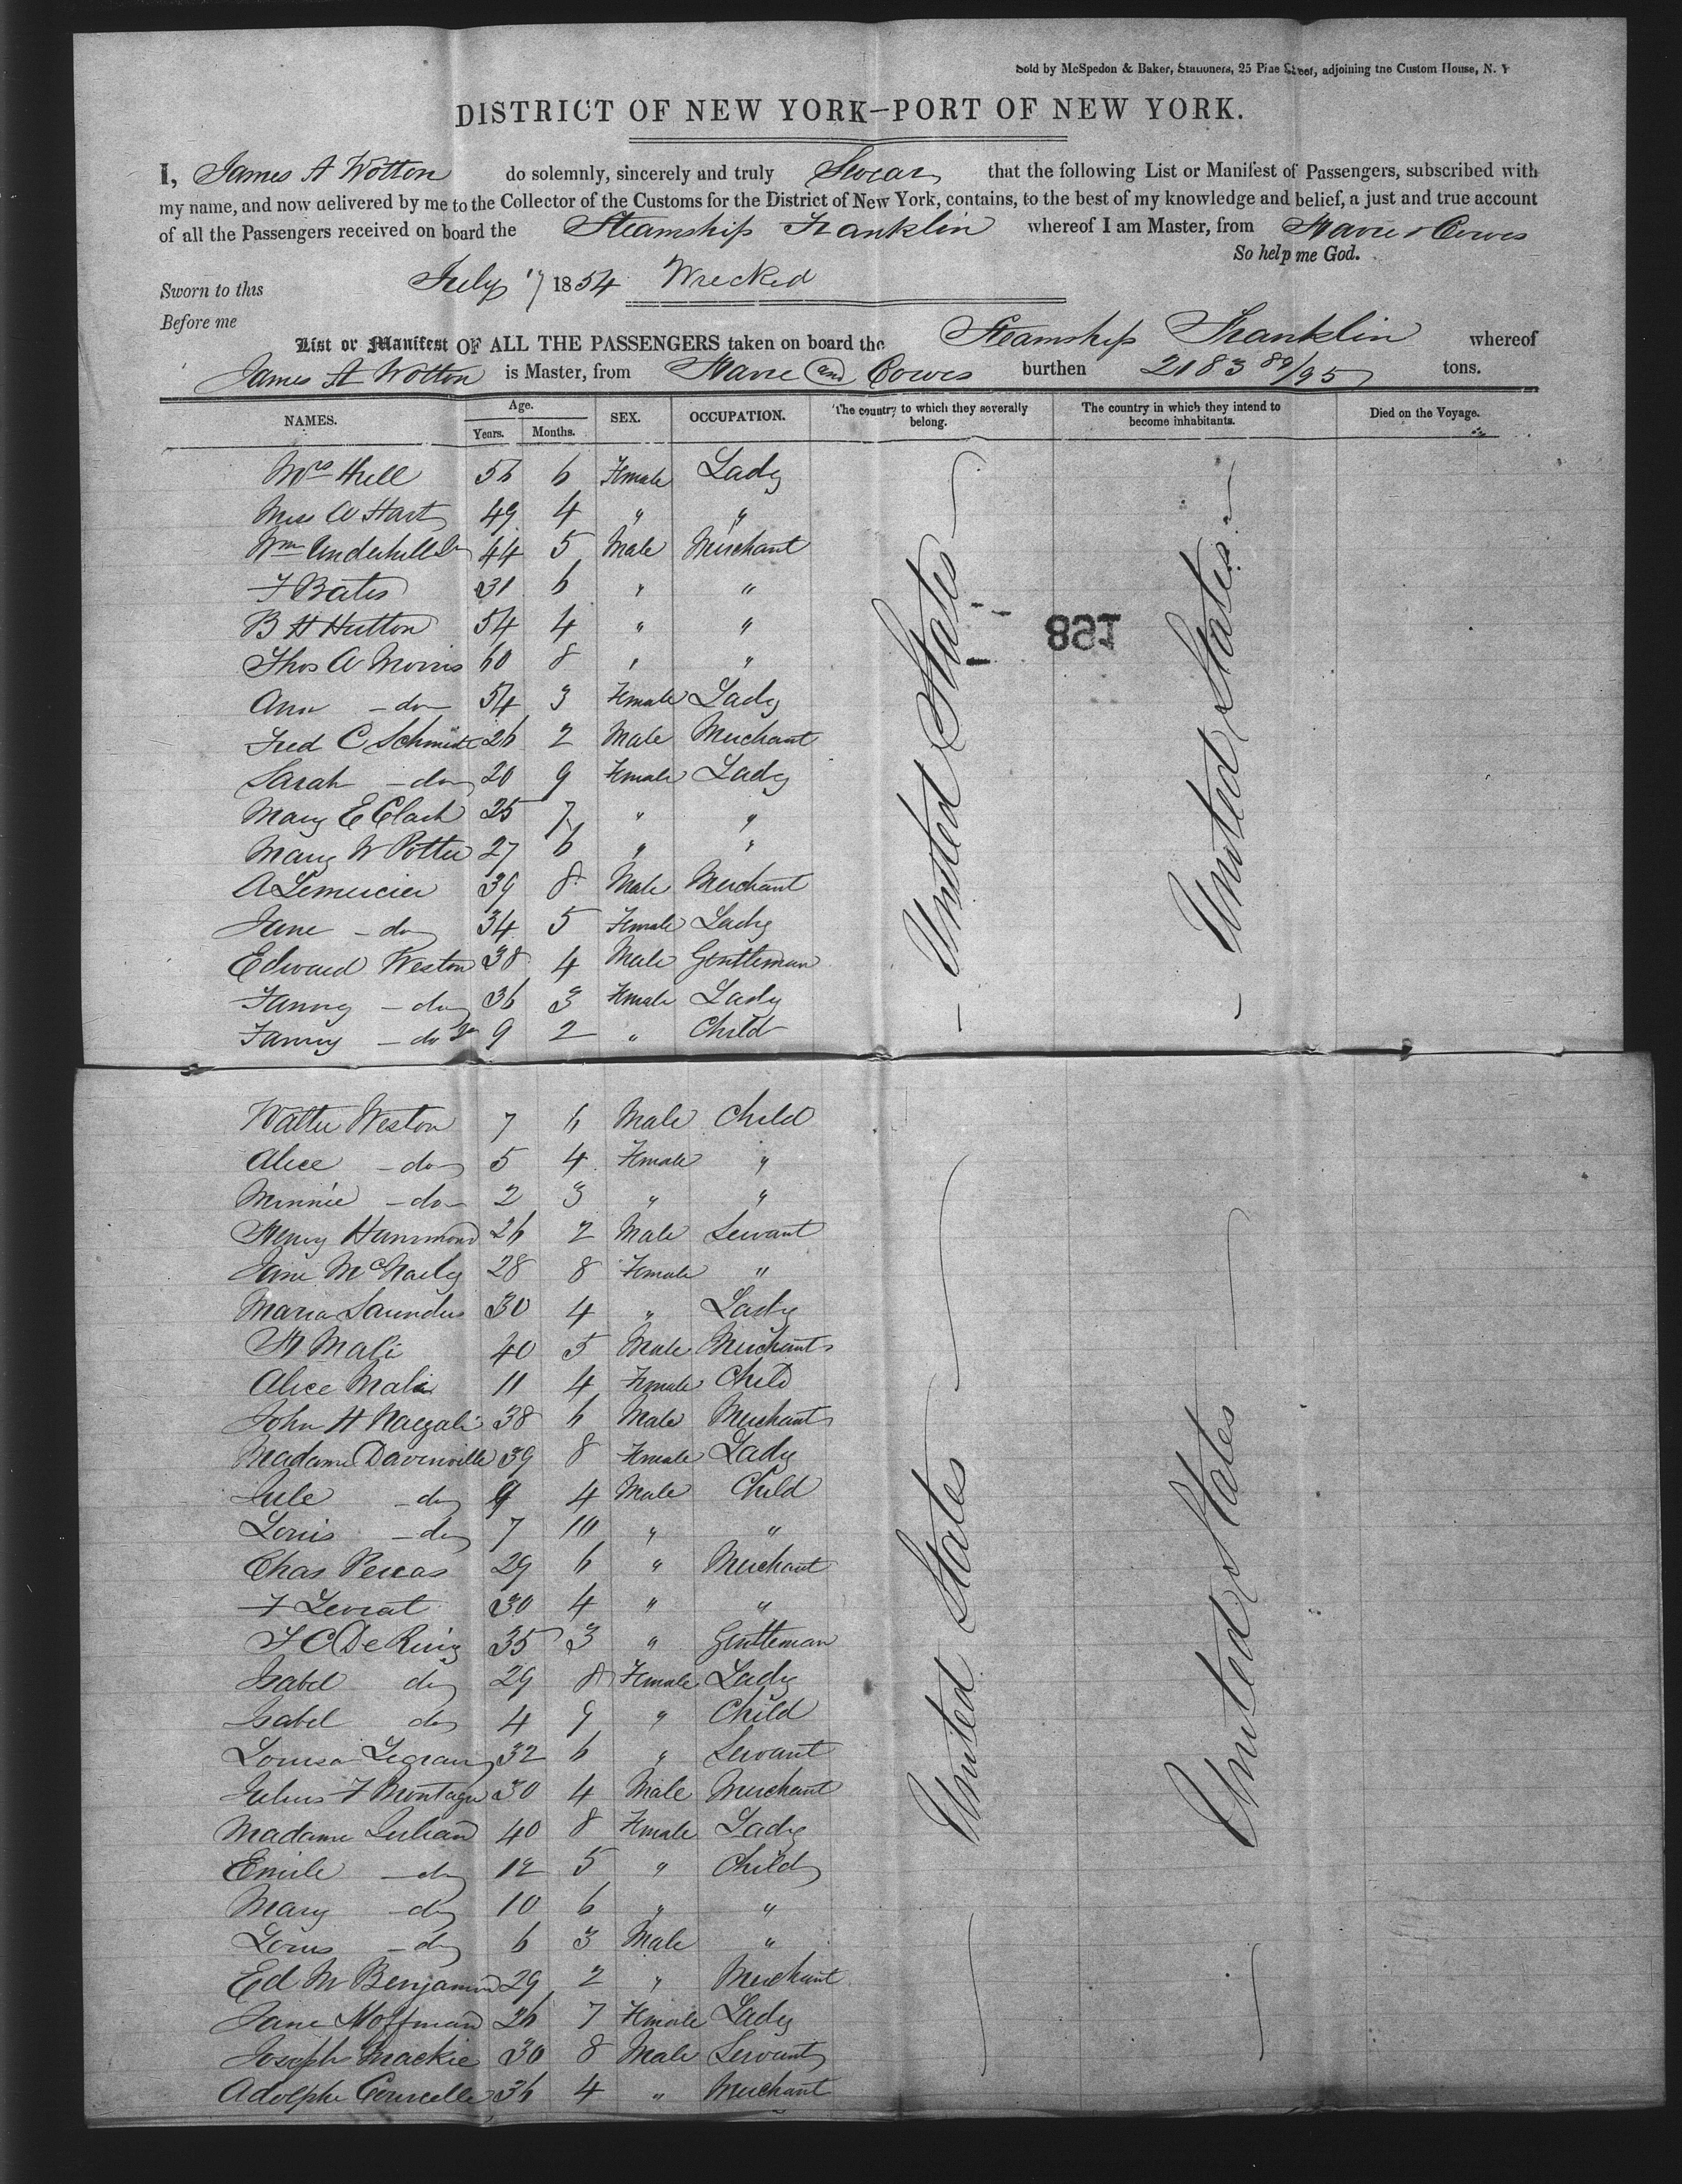 Sold by McSpedon & Baker, Stationers, 25 Pine Street, adjoining the Custom House, N. Y
DISTRICT OF NEW YORK–PORT OF NEW YORK.
I, James A Wotton do solemnly, sincerely and truly Swear that the following List or Manifest of Passengers, subscribed with
my name, and now delivered by me to the Collector of the Customs for the District of New York, contains, to the best of my knowledge and belief, a just and true account
of all the Passengers received on board the Steamship Franklin whereof I am Master, from Havre & Cowes
So help me God.
Sworn to this July 17 1854 Wrecked
Before me
List or Manifest OF ALL THE PASSENGERS taken on board the Steamship Franklin whereof
James A Wotton is Master, from Havre and Cowes burthen 2183 89/95 tons.
NAMES. Age. Years. Months. SEX. OCCUPATION. The country to which they severally belong. The country in which they intend to become inhabitants. Died on the Voyage.
Mrs Hell 56 6 Female Lady
Miss A Hart 49 4 " "
Wm Underhill Jr 44 5 Male Merchant
F Bates 31 6 " "
B H Hutton 54 4 " "
Thos A Morris 60 8 " "
Ann – do 54 3 Female Lady
Fred C Schmidt 26 2 Male Merchant
Sarah – do 20 9 Female Lady
Mary E Clark 25 7 " "
Mary W Potter 27 6 " "
A Lemercier 39 8 Male Merchant
Jane – do 34 5 Female Lady
Edward Weston 38 4 Male Gentleman
Fanny – do 36 3 Female Lady
Fanny – do Jr 9 2 " Child
United States
United States
158
Walter Weston 7 6 Male Child
Alice – do 5 4 Female "
Minnie – do 2 3 " "
Henry Hammond 26 2 Male Servant
Jane McNally 28 8 Female "
Maria Saunders 30 4 " Lady
H Mali 40 5 Male Merchant
Alice Mali 11 4 Female Child
John H Naegali 38 6 Male Merchant
Madame Davenville 39 8 Female Lady
Jule – do 9 4 Male Child
Louis – do 7 10 " "
Chas Percas 29 6 " Merchant
F Levrat 30 4 " "
F C De Ruiz 35 3 " Gentleman
Isabel do 29 8 Female Lady
Isabel do 4 9 " Child
Louisa 32 6 " Servant
Julius F Montagu 30 4 Male Merchant
Madame Julian 40 8 Female Lady
Emile – do 12 5 " Child
Mary – do 10 6 " "
Louis – do 6 3 Male "
Ed M Benjamin 29 2 " Merchant
Jane Hoffman 26 7 Female Lady
Joseph Mackie 30 8 Male Servant
Adolphe Courcelle 36 4 " Merchant
United States
United States